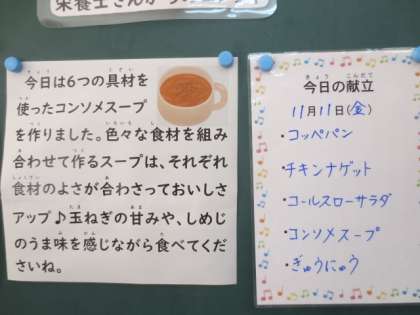 栄養士さんから
今日は6つの具材を
使ったコンソメスープ
を作りました。色々な食材を組み
合わせて作るスープは、それぞれ
食材のよさが合わさっておいしさ
アップ♪玉ねぎの甘みや、しめじ
のうま味を感じながら食べてくだ
さいね。
今日の献立
11月11日(金)
・コッペパン
・チキンナゲット
・コールスローサラダ
・コンソメスープ
・ぎゅうにゅう